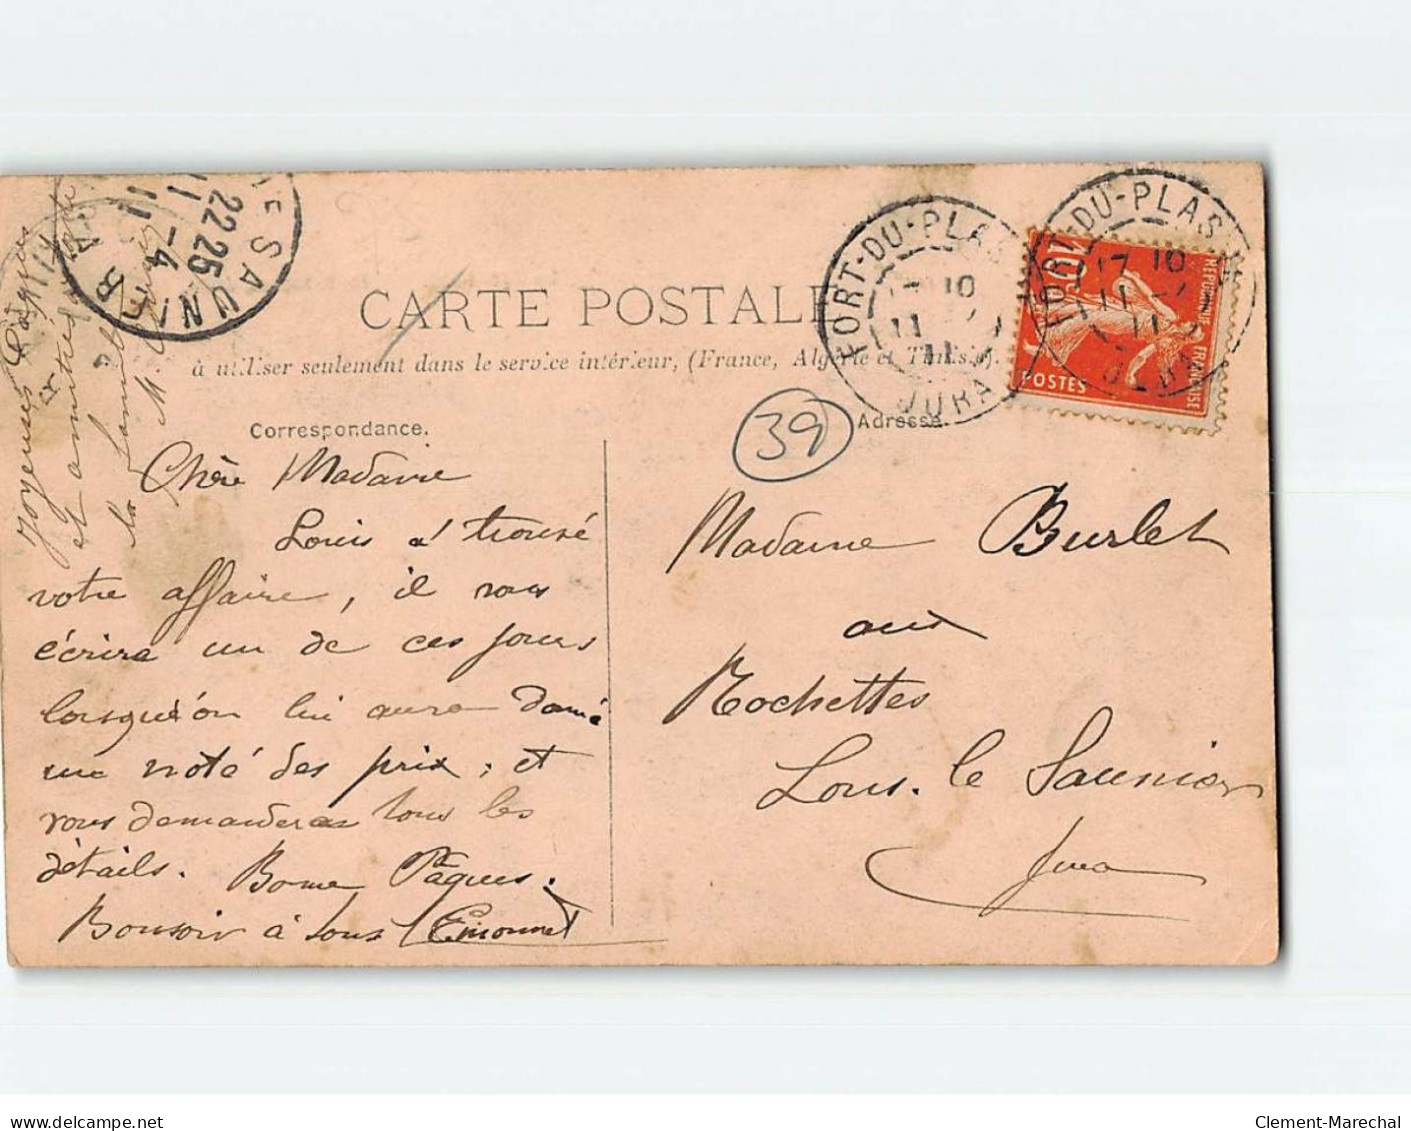 CARTE POSTALE
à utiliser seulement dans le service intérieur, (France, Algérie et Tunisie).
Correspondance.
Adresse.
39
Chère Madame
Louis a trouvé
votre affaire, il vous
écrira un de ces jours
lorsqu'on lui aura donné
une noté des prix; et
vous demandera tous les
détails. Bonne Pâques.
Bonsoir à tous Emonnet
Joyeuses Pâques
et amitiés
à la famille
Madame Burlet
aux
Rochettes
Lons. le Saunier
Jura
FORT-DU-PLASNE
JURA
FORT-DU-PLASNE
17 10
11
JURA
10
POSTES
REPUBLIQUE FRANÇAISE
LONS-LE-SAUNIER
22 25
11 -4
11
JURA
delcampe.net
Clement-Marechal